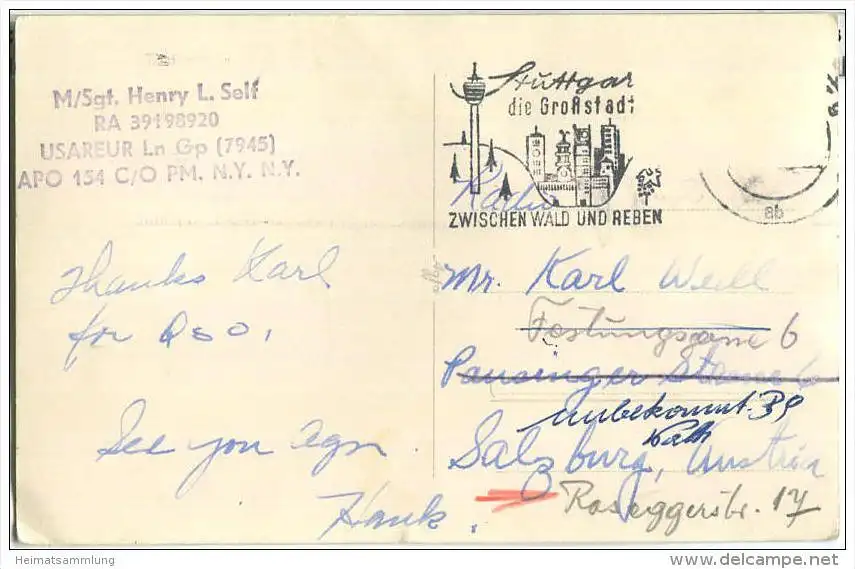 M/Sgt. Henry L. Self
RA 39198920
USAREUR Ln Gp (7945)
APO 154 C/O PM. N.Y. N.Y.
Thanks Karl
for QSO,
See you agn
Hank.
Stuttgar
die Großstadt
ZWISCHEN WALD UND REBEN
ab
Radio
Mr. Karl Weill
Festungsgasse 6
Pausinger Strasse 6
unbekannt
Salzburg, Austria
Roseggerstr. 17
Heimatsammlung
www.delcampe.net